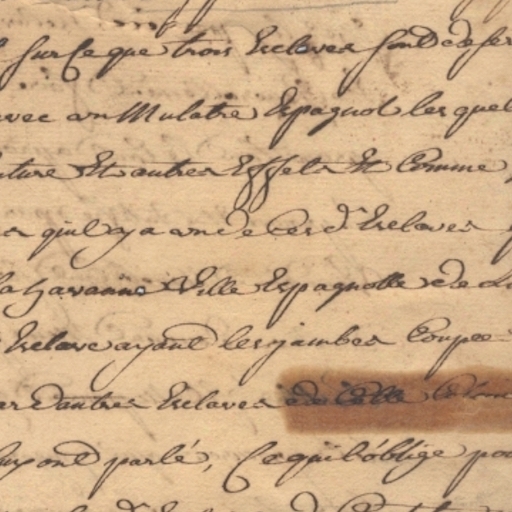 Sur Ce que trois Esclaves sont deser
avec un Mulatre Espagnol les quel
ture Et autres Effets Et Comme
quil y a un de Ces d. Esclaves
la havanne Ville Espagnolle de L
Esclave ayant les jambes Coupée
dautres Esclaves de Cette Colon
luy ont parlé, Ce qui l'óblige pou